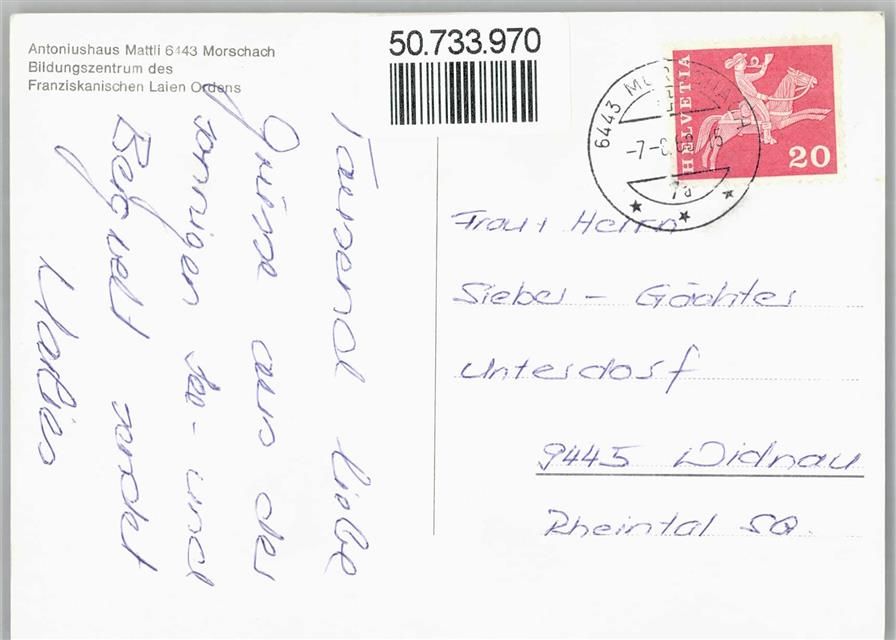 Antoniushaus Mattli 6443 Morschach
Bildungszentrum des
Franziskanischen Laien Ordens
50.733.970
HELVETIA
20
6443
-7-8.
Tausend liebe
Grüsse aus der
sonnigen See- und
Bergwelt sendet
Marlies
Frau + Herrn
Sieber - Gächter
Unterdorf
9445 Widnau
Rheintal SG.